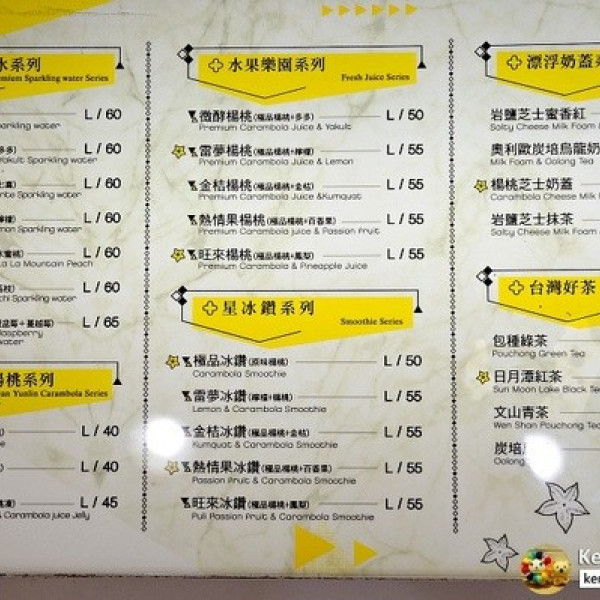 水系列
Premium Sparkling water Series
L / 60
Sparkling water
L / 60
Yakult Sparkling water
L / 60
Sparkling water
L / 60
Sparkling water
L / 60
La La Mountain Peach
L / 60
Sparkling water
L / 65
Raspberry
water
楊桃系列
Yunlin Carambola Series
L / 40
L / 40
L / 45
& Carambola juice Jelly
水果樂園系列
Fresh Juice Series
微酵楊桃(極品楊桃+多多) L / 50
Premium Carambola Juice & Yakult
雷夢楊桃(極品楊桃+檸檬) L / 55
Premium Carambola Juice & Lemon
金桔楊桃(極品楊桃+金桔) L / 55
Premium Carambola Juice &Kumquat
熱情果楊桃(極品楊桃+百香果) L / 55
Premium Carambola juice & Passion fruit
旺來楊桃(極品楊桃+鳳梨) L / 55
Premium Carambola & Pineapple Juice
星冰鑽系列
Smoothie Series
極品冰鑽(原味楊桃) L / 50
Carambola Smoothie
雷夢冰鑽(檸檬+楊桃) L / 55
Lemon & Carambola Smoothie
金桔冰鑽(極品楊桃+金桔) L / 55
Kumquat & Carambola Smoothie
熱情果冰鑽(極品楊桃+百香果) L / 55
Passion Fruit & Carambola Smoothie
旺來冰鑽(極品楊桃+鳳梨) L / 55
Puli Passion Fruit & Carambola Smoothie
漂浮奶蓋
岩鹽芝士蜜香紅
Salty Cheese Milk Foam &
奧利歐炭培烏龍奶
Milk Foam & Oolong Tea
楊桃芝士奶蓋
Carambola Cheese Milk Foam
岩鹽芝士抹茶
Salty Cheese Milk Foam &
台灣好茶
包種綠茶
Pouchong Green Tea
日月潭紅茶
Sun Moon Lake Black Tea
文山青茶
Wen Shan Pouchong Tea
炭培
Oolong
Ke
ke